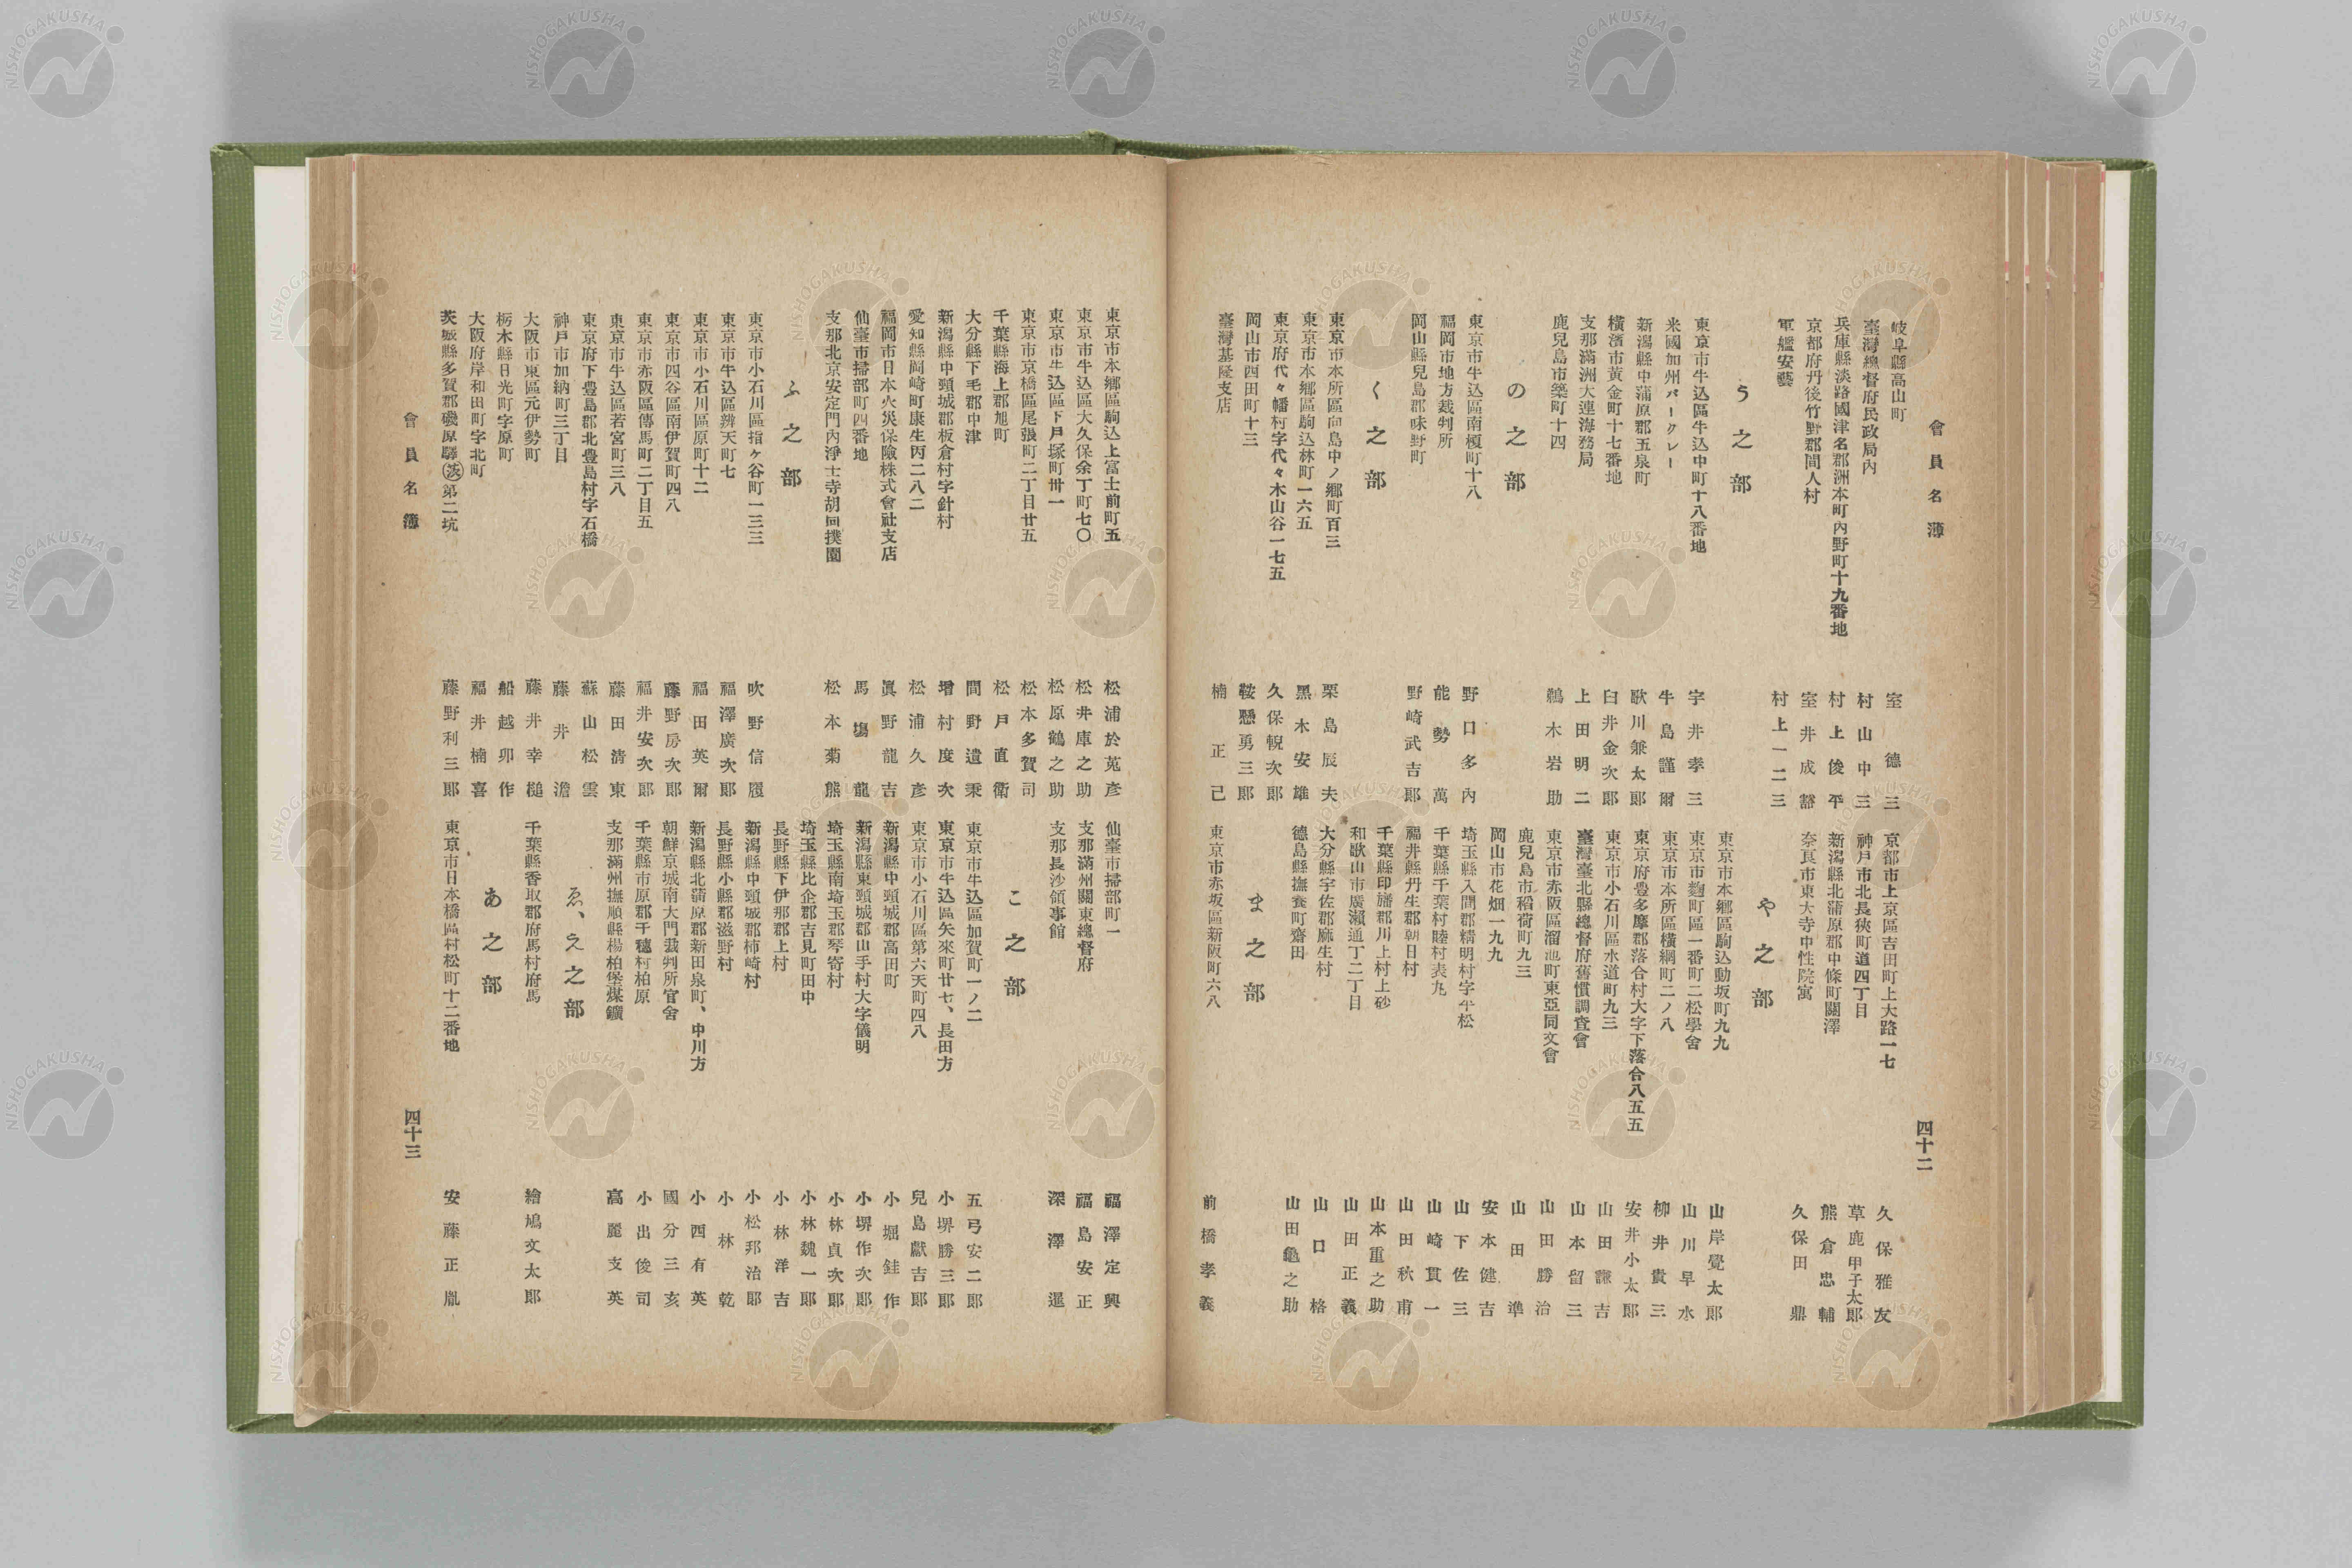 會員名簿
岐阜縣高山町 室德三
臺灣總督府民政局內 村山中三
兵庫縣淡路國津名郡洲本町內野町十九番地 村上俊平
京都府丹後竹野郡間人村 室井成豁
軍艦安藝 村上一二三
う之部
東京市牛込區牛込中町十八番地 宇井孝三
米國加州バークレー 牛島謹爾
新潟縣中蒲原郡五泉町 歌川兼太郎
橫濱市黃金町十七番地 臼井金次郎
支那滿洲大連海務局 上田明二
鹿兒島市築町十四 鵜木岩助
の之部
東京市牛込區南榎町十八 野口多內
福岡市地方裁判所 能勢萬
岡山縣兒島郡味野町 野崎武吉郎
く之部
東京市本所區向島中ノ鄉町百三 栗島辰夫
東京市本鄉區駒込林町一六五 黑木安雄
東京府代々幡村字代々木山谷一七五 久保輗次郎
岡山市西田町十三 鞍懸勇三郎
臺灣基隆支店 楠正己
京都市上京區吉田町上大路一七 久保雅友
神戶市北長狹町道四丁目 草鹿甲子太郎
新潟縣北蒲原郡中條町關澤 熊倉忠輔
奈良市東大寺中性院寓 久保田鼎
や之部
東京市本鄉區駒込動坂町九九 山岸覺太郎
東京市麴町區一番町二松學舍 山川早水
東京市本所區橫網町二ノ八 柳井貴三
東京府豐多摩郡落合村大字下落合八五五 安井小太郎
東京市小石川區水道町九三 山田謙吉
臺灣臺北縣總督府舊慣調査會 山本留三
東京市赤阪區溜池町東亞同文會 山田勝治
鹿兒島市稻荷町九三 山田準
岡山市花畑一九九 安本健吉
埼玉縣入間郡精明村字平松 山下佐三
千葉縣千葉村睦村表丸 山崎貫一
福井縣丹生郡朝日村 山田秋甫
千葉縣印旛郡川上村上砂 山本重之助
和歌山市廣瀨通丁二丁目 山田正義
大分縣宇佐郡麻生村 山口格
德島縣撫養町齋田 山田龜之助
ま之部
東京市赤坂區新阪町六八 前橋孝義
四十二
東京市本鄉區駒込上富士前町五 松浦於菟彥
東京市牛込區大久保余丁町七〇 松井庫之助
東京市牛込區下戶塚町卅一 松原鶴之助
東京市京橋區尾張町二丁目廿五 松本多賀司
千葉縣海上郡旭町 松戶直衞
大分縣下毛郡中津 間野遺秉
新潟縣中頸城郡板倉村字針村 增村度次
愛知縣岡崎町康生丙二八二 松浦久彥
福岡市日本火災保險株式會社支店 眞野龍吉
仙臺市掃部町四番地 馬塲龍
支那北京安定門內淨土寺胡同撲園 松本菊熊
ふ之部
東京市小石川區指ヶ谷町一三三 吹野信履
東京市牛込區辨天町七 福澤廣次郎
東京市小石川區原町十二 福田英爾
東京市四谷區南伊賀町四八 藤野房次郎
東京市赤阪區傳馬町二丁目五 福井安次郎
東京市牛込區若宮町三八 藤田清東
東京府下豐島郡北豐島村字石橋 蘇山松雲
神戶市加納町三丁目 藤井澹
大阪市東區元伊勢町 藤井幸槌
栃木縣日光町字原町 船越卯作
大阪府岸和田町字北町 福井楠喜
茨城縣多賀郡磯原驛(茨)第二坑 藤野利三郎
仙臺市掃部町一 福澤定興
支那滿州關東總督府 福島安正
支那長沙領事館 深澤暹
こ之部
東京市牛込區加賀町一ノ二 五弓安二郎
東京市牛込區矢來町廿七、長田方 小堺勝三郎
東京市小石川區第六天町四八 兒島獻吉郎
新潟縣中頸城郡高田町 小堀銈作
新潟縣東頸城郡山手村大字儀明 小堺作次郎
埼玉縣南埼玉郡琴寄村 小林貞次郎
埼玉縣比企郡吉見町田中 小林魏一郎
長野縣下伊那郡上村 小林洋吉
新潟縣中頸城郡柿崎村 小松邦治郎
長野縣小縣郡滋野村 小林乾
新潟縣北蒲原郡新田泉町、中川方 小西有英
朝鮮京城南大門裁判所官舍 國分三亥
千葉縣市原郡千種村柏原 小出俊司
支那滿州撫順縣楊柏堡煤鑛 高麗支英
ゑ、え之部
千葉縣香取郡府馬村府馬 繪鳩文太郎
あ之部
東京市日本橋區村松町十二番地 安藤正胤
會員名簿
四十三